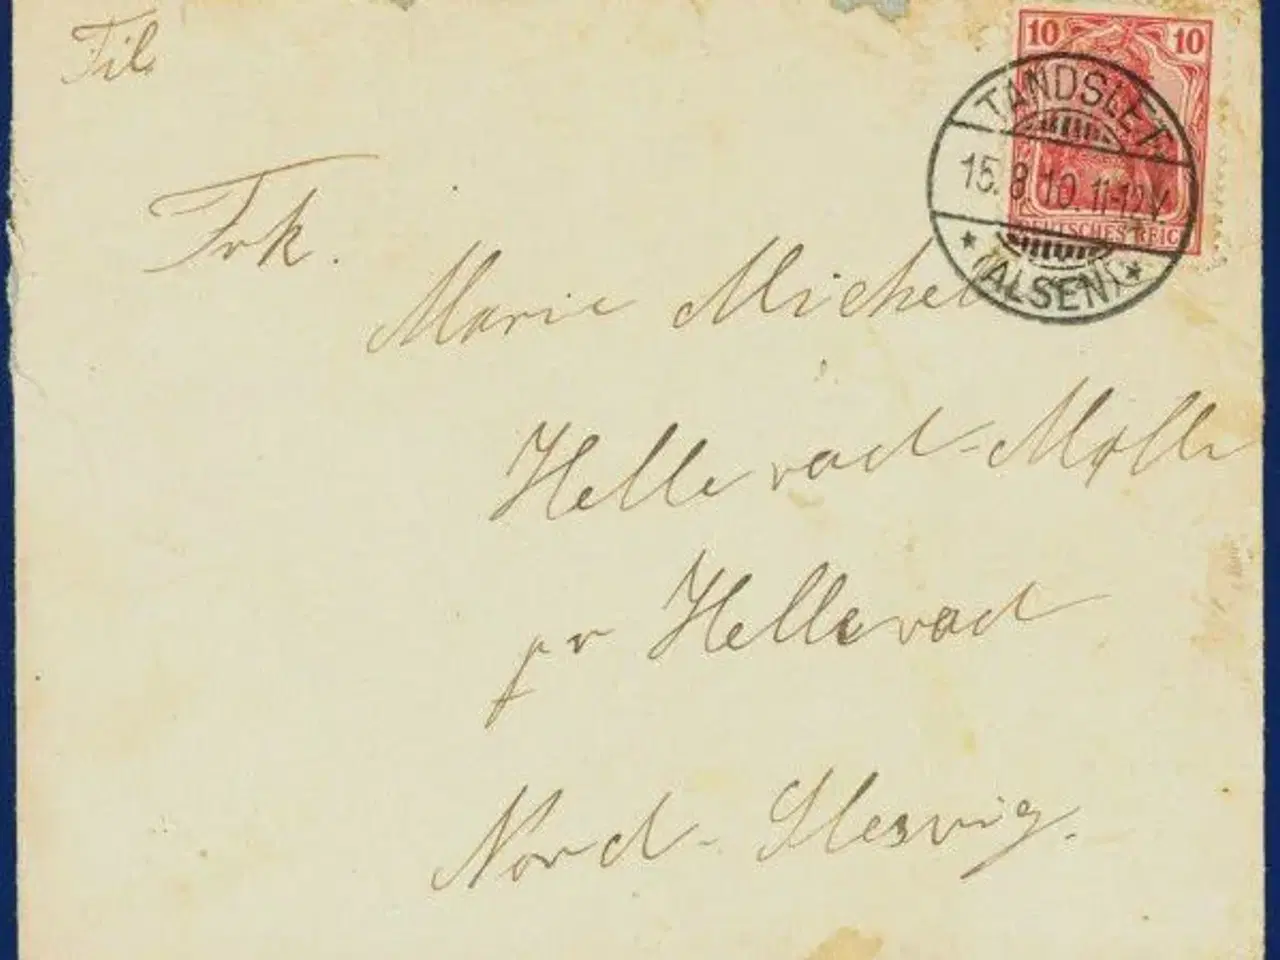 Til
10 10
TANDSLET
15.8.10. 11-12V.
DEUTSCHES REICH
* (ALSEN) *
Frk.
Marie Michel
Hellevad-Mølle
pr Hellevad
Nord-Slesvig.